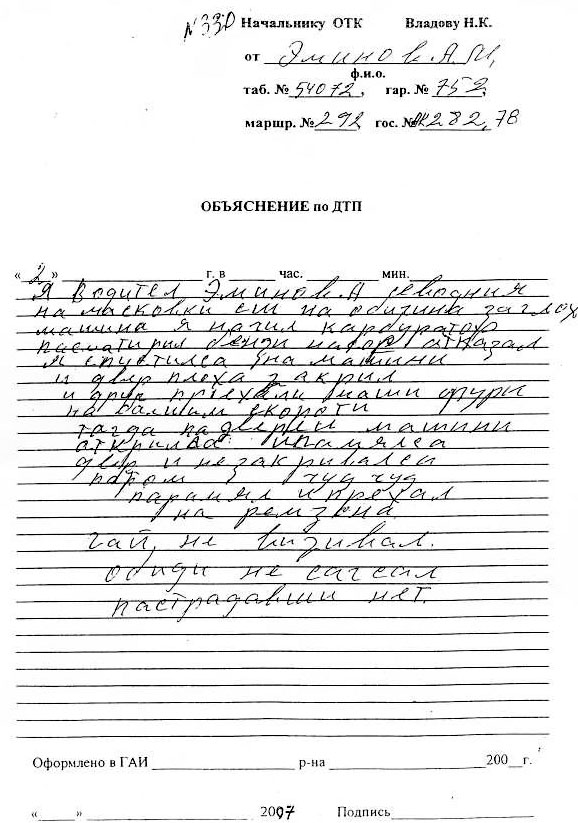 №330 Начальнику ОТК Владову Н.К.
от Эминов А.М,
ф.и.о.
таб. № 54072, гар. № 752
маршр. № 292 гос. № 282, 78
ОБЪЯСНЕНИЕ по ДТП
« 2 » г. в час. мин.
Я водител Эминов А севодния
на масковки на обитина заглох
машина я начил карбуратор
пасматирил бензи насор атказал
я спустилса на машини
и двер плоха закрил
и друк приехали наши фури
на балшим скороти
тагда па дверей машини
аткрилса и памялса
двер и незакривалси
патом чуд чуд
парамял и прехал
на ремзона
гаи, не визивал.
обиди не сагсал
пастрадавши нет.
Оформлено в ГАИ р-на 200 г.
« » 2007 Подпись